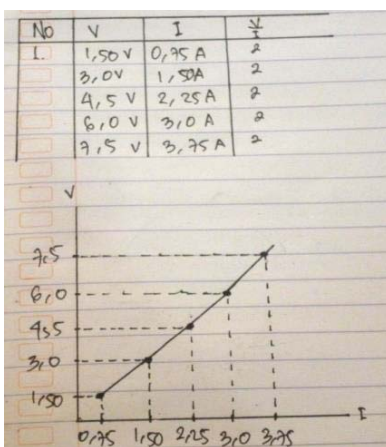 No V I V/I
1. 1,50 V 0,75 A 2
3,0 V 1,50A 2
4,5 V 2,25 A 2
6,0 V 3,0 A 2
7,5 V 3,75 A 2
V
7,5
6,0
4,5
3,0
1,50
I
0,75 1,50 2,25 3,0 3,75